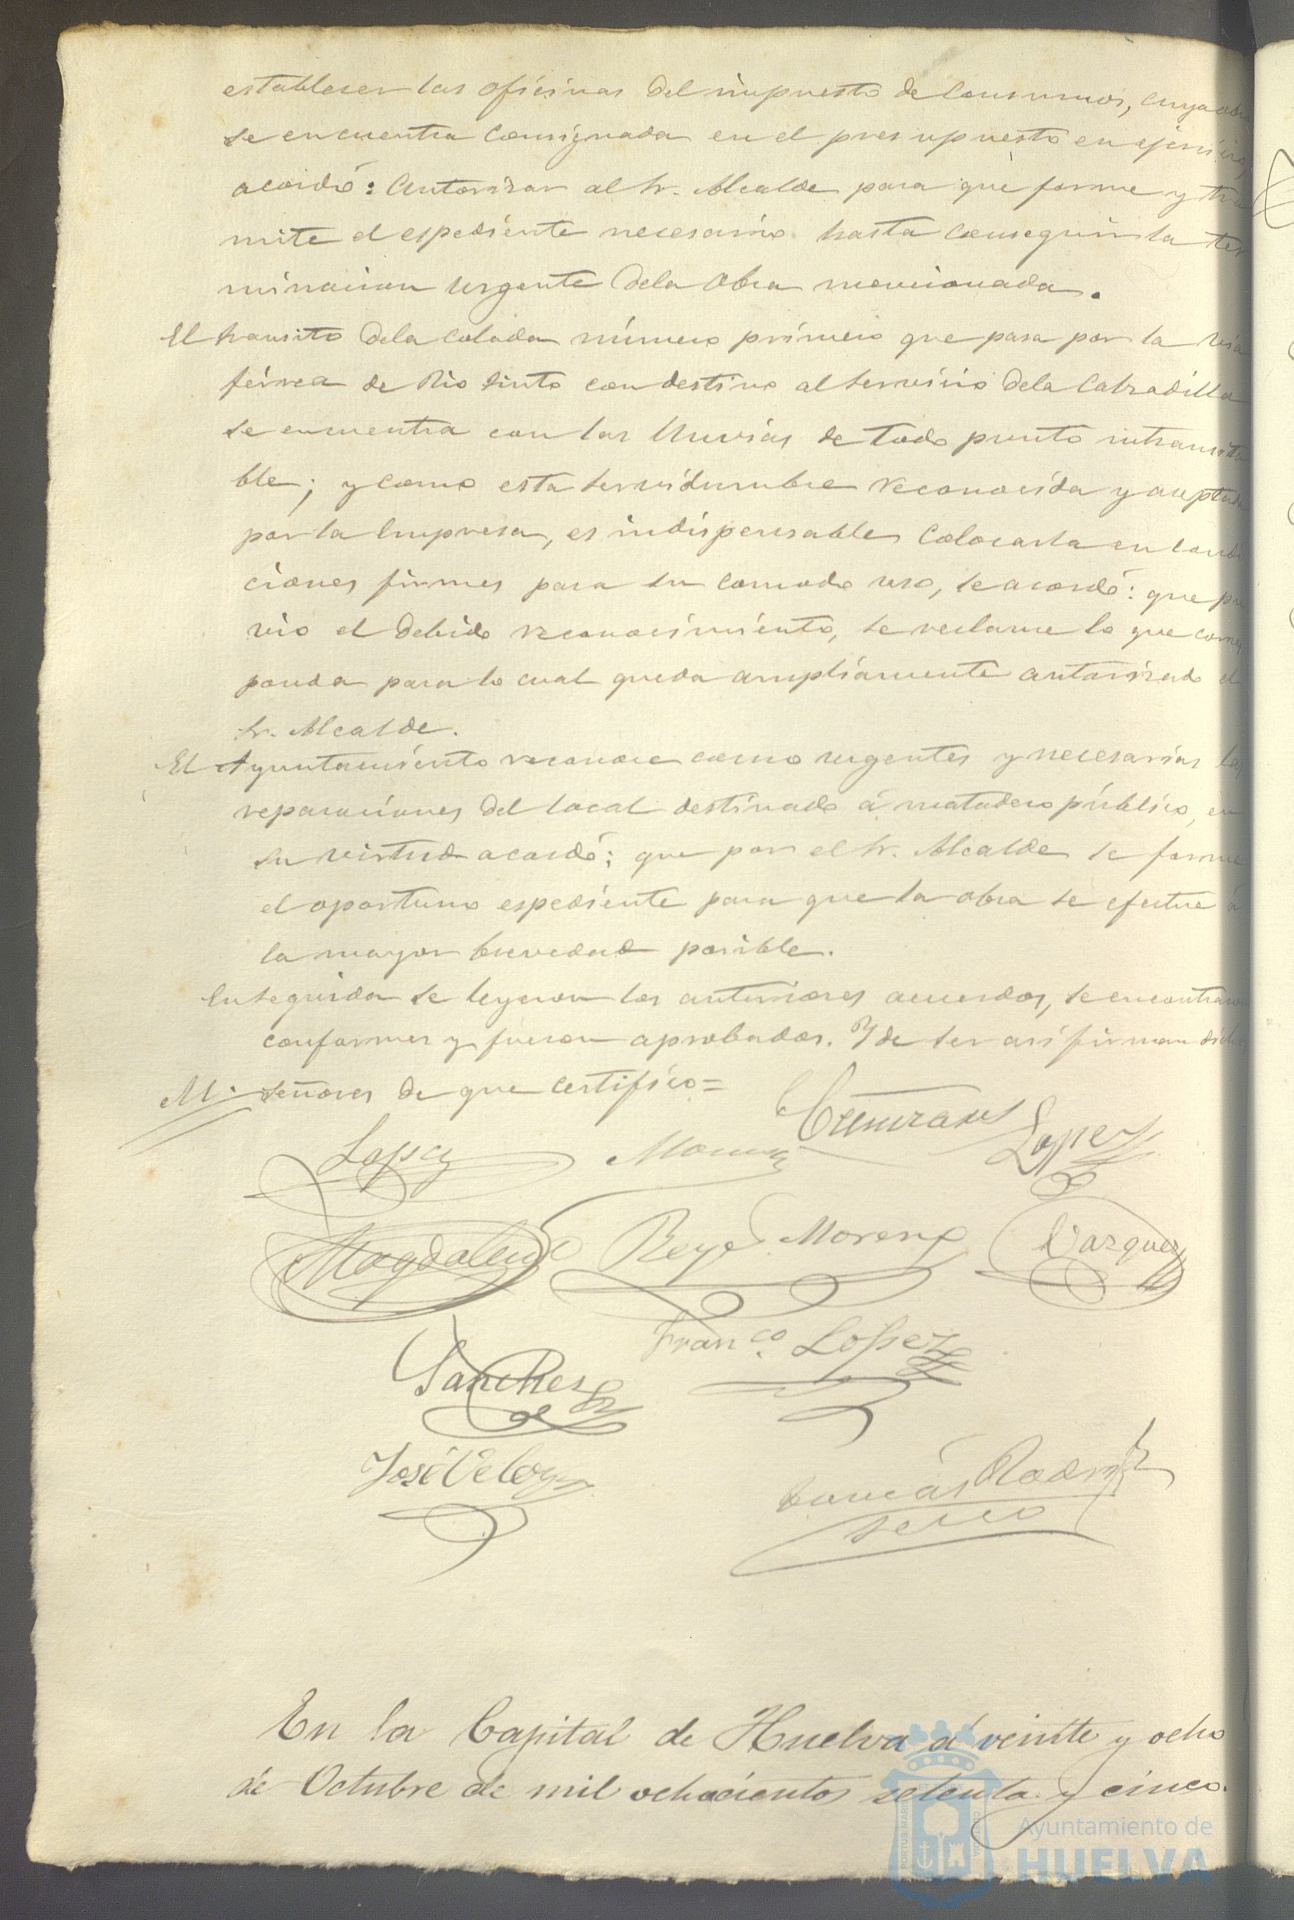 establecer las oficinas del impuesto de Consumos, cuya obra
se encuentra consignada en el presupuesto en ejercicio,
acordó: Autorizar al Sr. Alcalde para que forme y tra
mite el espediente necesario hasta conseguir la ter
minacion urgente dela obra mencionada.
El transito dela colada número primero que pasa por la via
férrea de Rio tinto con destino al servicio dela Calzadilla
se encuentra con las lluvias de todo punto intransita
ble; y como esta servidumbre reconocida y aceptada
por la Empresa, es indispensable colocarla en condi
ciones firmes para su comodo uso, se acordó: que pre
vio el debido reconocimiento, se reclame lo que corres
ponda para lo cual queda ampliamente autorizado el
Sr. Alcalde.
El Ayuntamiento reconoce como urgentes y necesarias las
reparaciones del local destinado á matadero público, en
su virtud acordó; que por el Sr. Alcalde se forme
el oportuno espediente para que la obra se efectue á
la mayor brevedad posible.
Enseguida se leyeron los anteriores acuerdos, se encontraron
conformes y fueron aprobados. Y de ser asi firman dichos
señores de que certifico=
Lopez
Lopez
Magdalena
Moreno
Vazquez
Sanchez
Franco. Lopez
José
Tomás Rodrz
En la Capital de Huelva á veinte y ocho
de Octubre de mil ochocientos setenta y cinco.
Ayuntamiento de
HUELVA